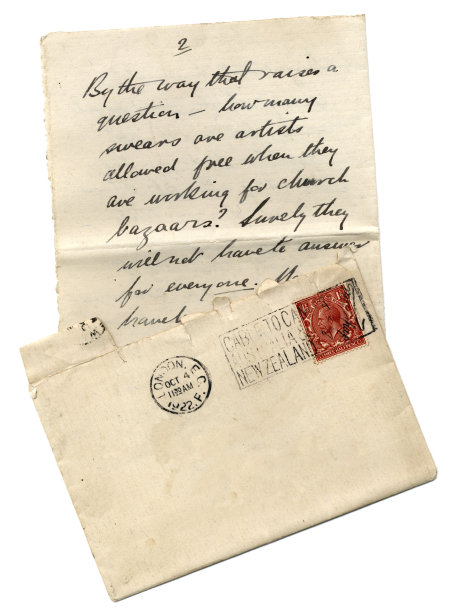 2
By the way that raises a
question – how many
swears are artists
allowed free when they
are working for church
bazaars? Surely they
will not have to answer
for everyone.
travel
LONDON. E.C.
OCT 4
1922. F.
CABLE TO CA
NEW ZEALAND